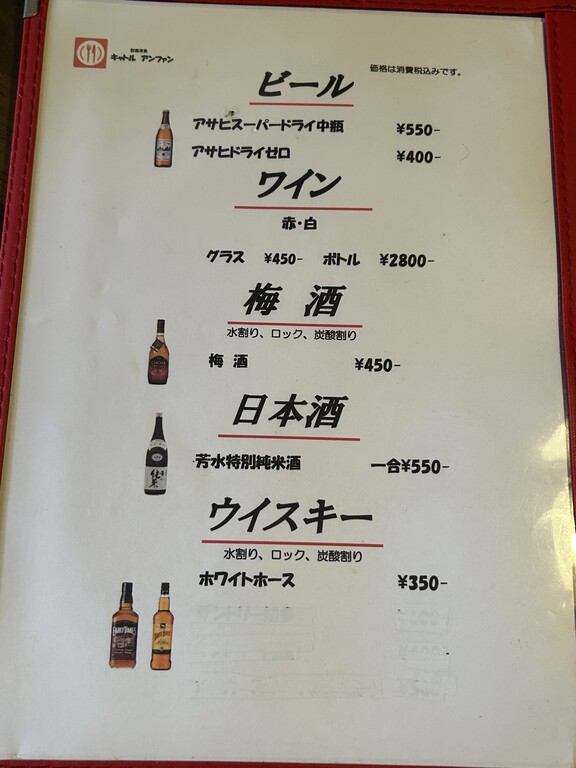 キャトル アンファン
価格は消費税込みです。
ビール
アサヒスーパードライ中瓶 ¥550-
アサヒドライゼロ ¥400-
ワイン
赤・白
グラス ¥450- ボトル ¥2800-
梅 酒
水割り、ロック、炭酸割り
梅 酒 ¥450-
日本酒
芳水特別純米酒 一合¥550-
ウイスキー
水割り、ロック、炭酸割り
ホワイトホース ¥350-
EARLY TIMES